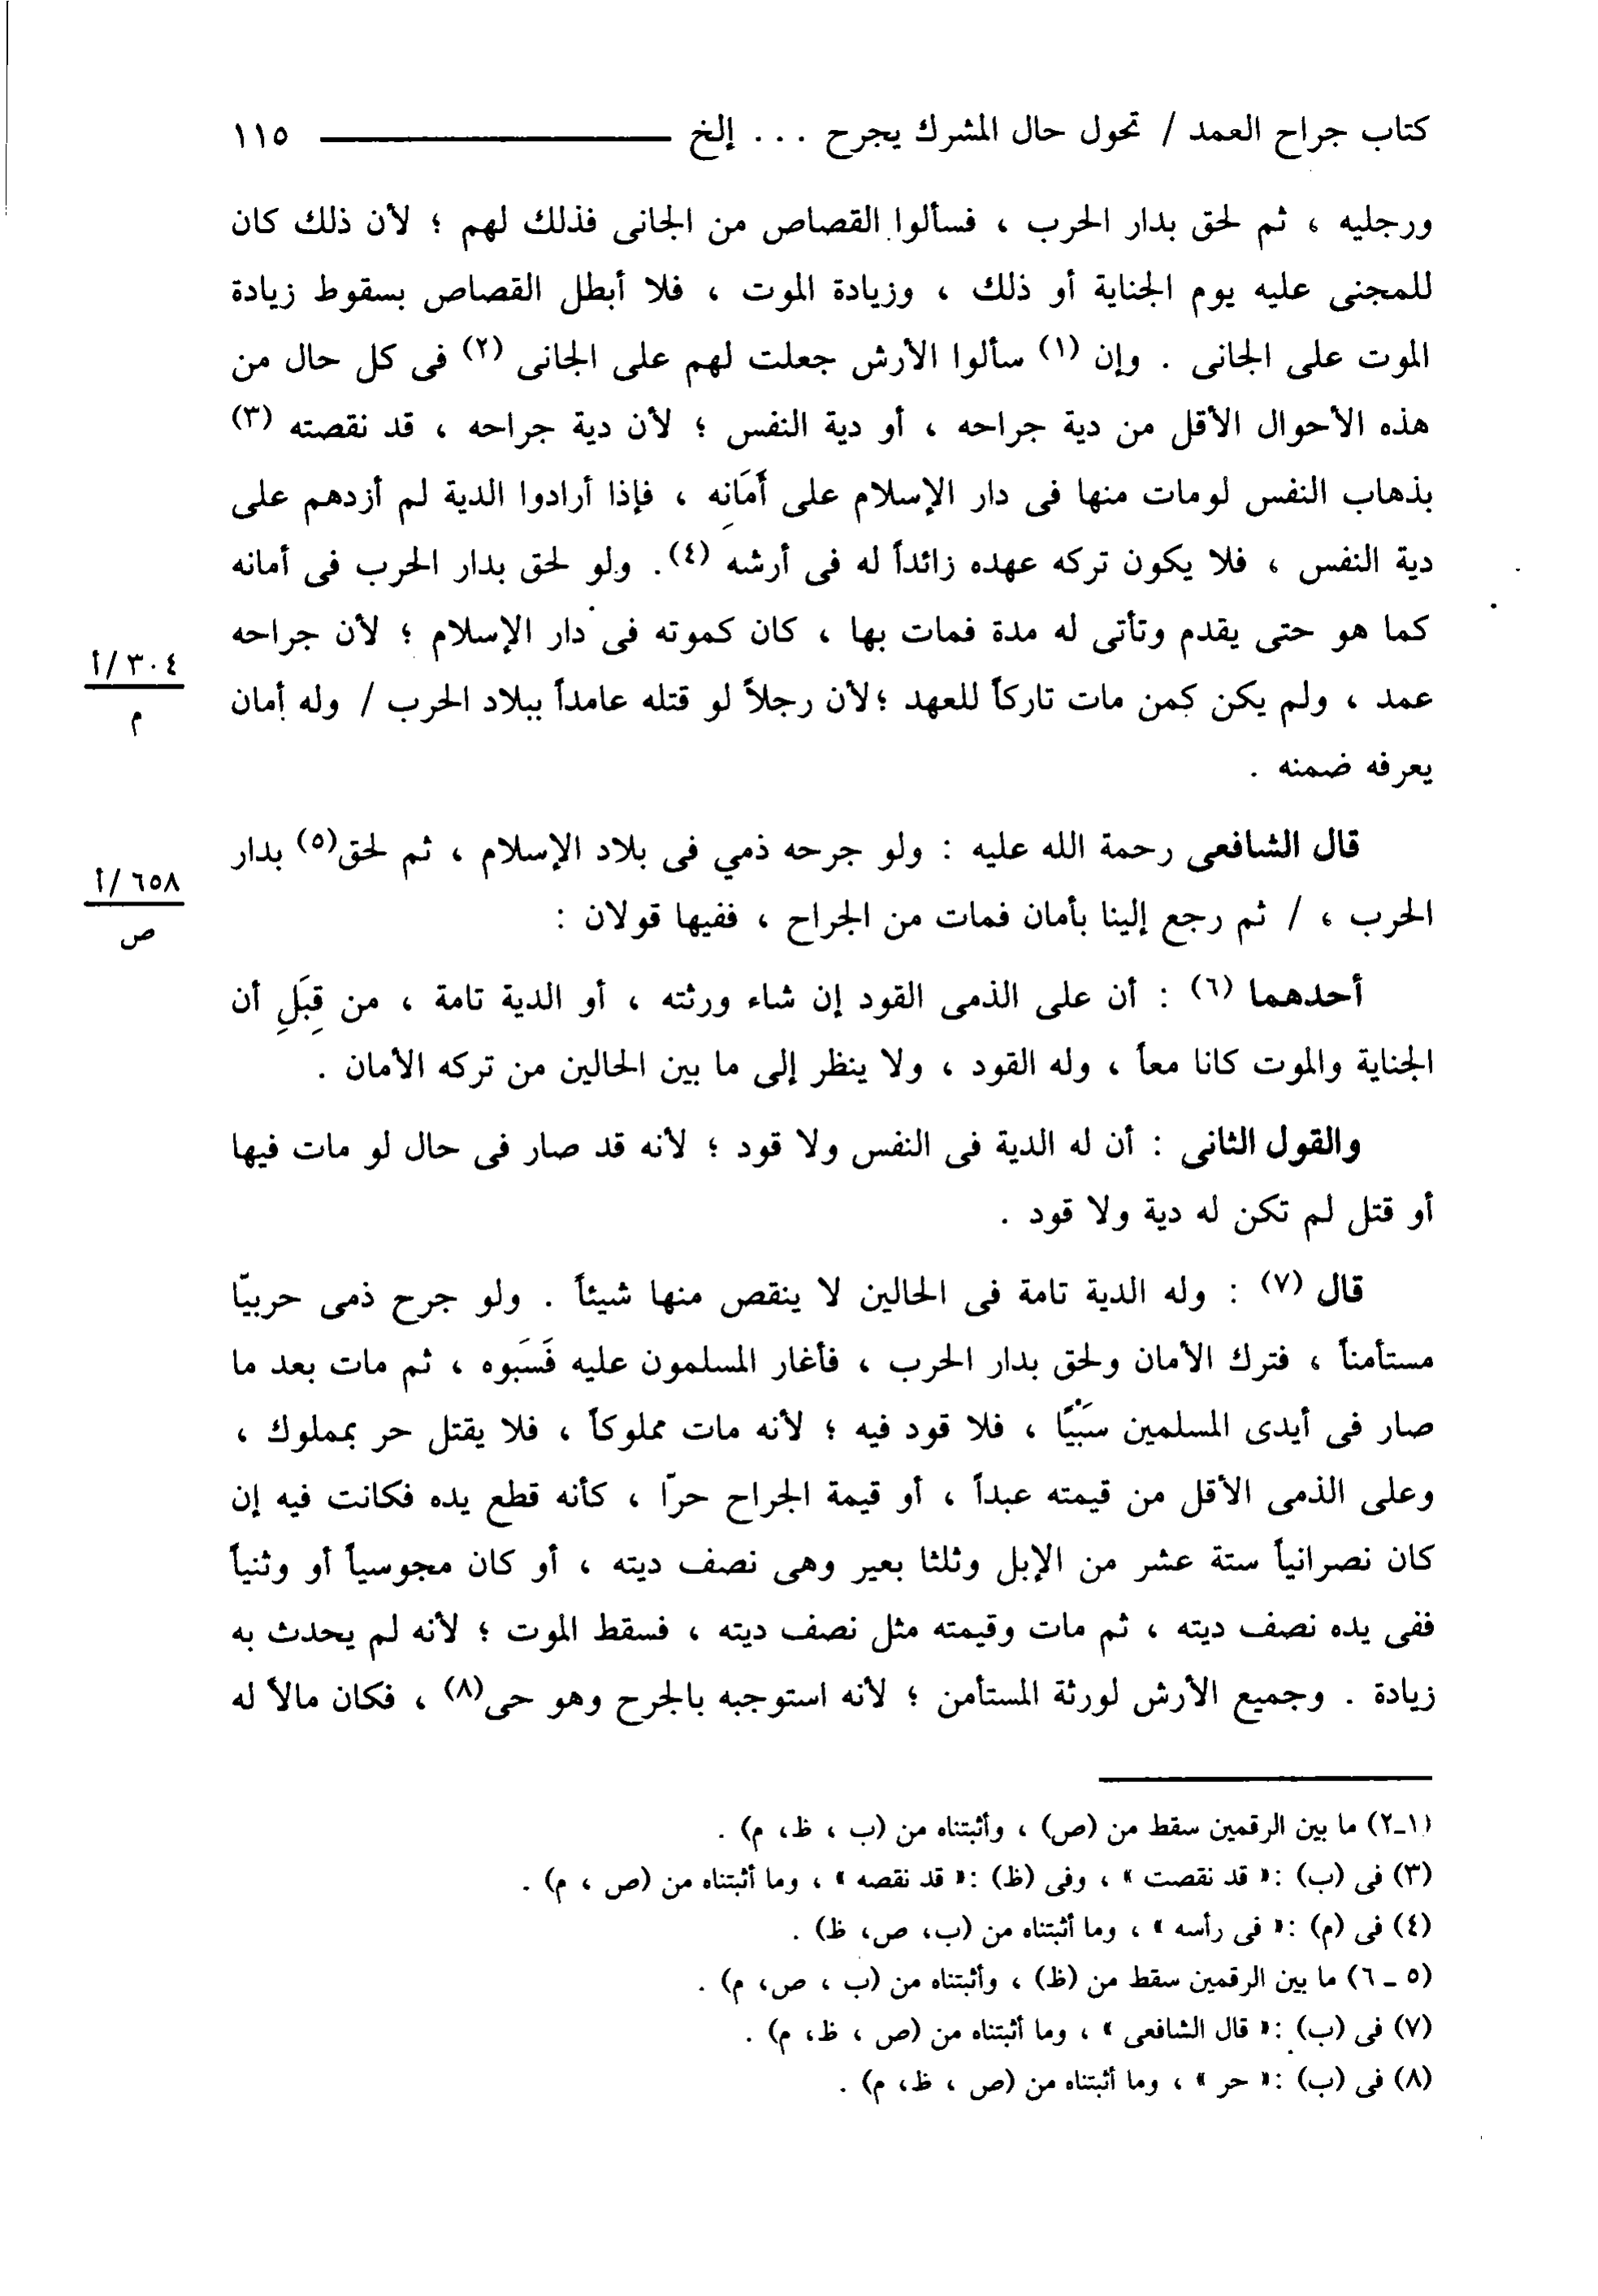 كتاب جراح العمد / تحول حال المشرك يجرح ... إلخ ــــــــــــــ ١١٥
ورجليه ، ثم لحق بدار الحرب ، فسألوا القصاص من الجانى فذلك لهم ؛ لأن ذلك كان
للمجنى عليه يوم الجناية أو ذلك ، وزيادة الموت ، فلا أبطل القصاص بسقوط زيادة
الموت على الجانى . وإن (١) سألوا الأرش جعلت لهم على الجانى (٢) فى كل حال من
هذه الأحوال الأقل من دية جراحه ، أو دية النفس ؛ لأن دية جراحه ، قد نقصته (٣)
بذهاب النفس لومات منها فى دار الإسلام على أَمَانِه ، فإذا أرادوا الدية لم أزدهم على
دية النفس ، فلا يكون تركه عهده زائداً له فى أرشه (٤). ولو لحق بدار الحرب فى أمانه
كما هو حتى يقدم وتأتى له مدة فمات بها ، كان كموته فى دار الإسلام ؛ لأن جراحه
٣٠٤/أ
م
عمد ، ولم يكن كمن مات تاركاً للعهد ؛لأن رجلاً لو قتله عامداً ببلاد الحرب / وله أمان
يعرفه ضمنه .
قال الشافعى رحمة الله عليه : ولو جرحه ذمي فى بلاد الإسلام ، ثم لحق(٥) بدار
٦٥٨/أ
ص
الحرب ، / ثم رجع إلينا بأمان فمات من الجراح ، ففيها قولان :
أحدهما (٦) : أن على الذمى القود إن شاء ورثته ، أو الدية تامة ، من قِبَلِ أن
الجناية والموت كانا معاً ، وله القود ، ولا ينظر إلى ما بين الحالين من تركه الأمان .
والقول الثانى : أن له الدية فى النفس ولا قود ؛ لأنه قد صار فى حال لو مات فيها
أو قتل لم تكن له دية ولا قود .
قال (٧) : وله الدية تامة فى الحالين لا ينقص منها شيئاً . ولو جرح ذمى حربيّا
مستأمناً ، فترك الأمان ولحق بدار الحرب ، فأغار المسلمون عليه فَسَبوه ، ثم مات بعد ما
صار فى أيدى المسلمين سَبْيًا ، فلا قود فيه ؛ لأنه مات مملوكاً ، فلا يقتل حر بمملوك ،
وعلى الذمى الأقل من قيمته عبداً ، أو قيمة الجراح حرّا ، كأنه قطع يده فكانت فيه إن
كان نصرانياً ستة عشر من الإبل وثلثا بعير وهى نصف ديته ، أو كان مجوسياً أو وثنياً
ففى يده نصف ديته ، ثم مات وقيمته مثل نصف ديته ، فسقط الموت ؛ لأنه لم يحدث به
زيادة . وجميع الأرش لورثة المستأمن ؛ لأنه استوجبه بالجرح وهو حى(٨) ، فكان مالاً له
(١ـ٢) ما بين الرقمين سقط من (ص) ، وأثبتناه من (ب ، ظ، م) .
(٣) فى (ب) :« قد نقصت » ، وفى (ظ) :« قد نقصه » ، وما أثبتناه من (ص ، م) .
(٤) فى (م) :« فى رأسه » ، وما أثبتناه من (ب، ص، ظ) .
(٥ ـ ٦) ما بين الرقمين سقط من (ظ) ، وأثبتناه من (ب ، ص، م) .
(٧) فى (ب) :« قال الشافعى » ، وما أثبتناه من (ص ، ظ، م) .
(٨) فى (ب) :« حر » ، وما أثبتناه من (ص ، ظ، م) .